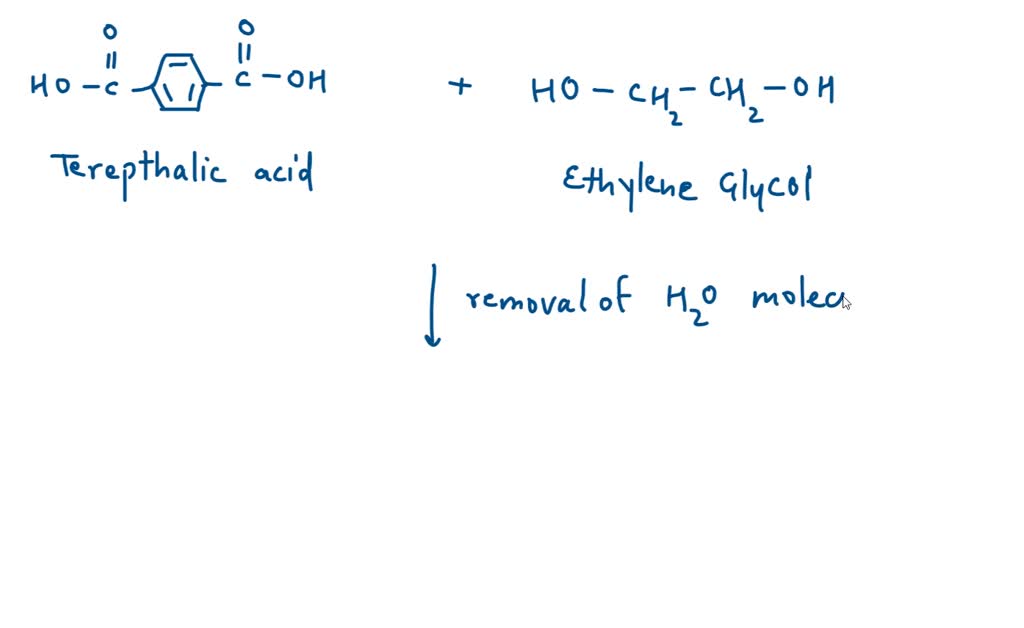 O O
HO - C - C - OH + HO - CH2 - CH2 - OH
Terepthalic acid Ethylene Glycol
removal of H2O molec